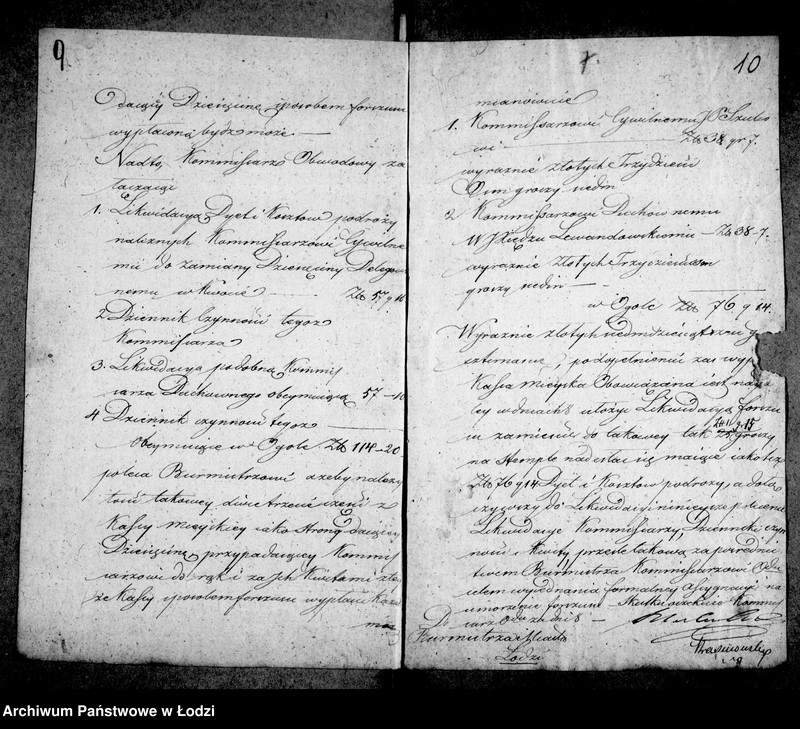 9
dający Dziesięcinę sposobem forszusu
wypłaconą bydź może. —
Nadto, Kommissarz Obwodowy za
łaczając
1. Likwidacyą Dyet i Kosztów podróży
należnych Kommissarzowi Cywilne
mu do zamiany Dziesięciny Delego
nemu w kwocie — Zł 57 g 10
2 Dziennik Czynności tegoż
Kommissarza
3. Likwidacyą podobną Kommis
sarza Duchownego obeymuiącą 57 — 10
4 Dziennik czynności tegoż
Obeymuiące w Ogóle Zł 114 — 20
poleca Burmistrzowi ażeby należy
tość takowey dwie trzecie części z
Kassy Mieyskiey iako Strony daiącey
Dziesięcinę przypadaiącey Kommis
sarzowi do rąk i za Ich Kwitami z te
że Kassy sposobem forszusu wypłacić kaza
mać
10
mianowicie
1. Kommissarzowi Cywilnemu JP Szulco
wi — Zł 38 gr 7.
wyraźnie złotych Trzydzieści
Ośm groszy siedm
2 Kommissarzowi Duchownemu
W JXiędzu Lewandowskiemu — Zł 38 — 7.
wyraźnie złotych Trzydzieści ośm
groszy siedm —
w Ogóle Zł 76 g 14.
Wyraźnie złotych siedmdziesiąt sześć g
czternaście, po dopełnieniu zaś wyp
Kassa Mieyska Obowiązana iest
w dniach 8 ułoży Likwidacyą forszu
su zamieści do takowey tak
gr 15 groszy
na Stempel nadesłać się maiące iako też
Zł 76 g 14 Dyet i Kosztów podróży, a dołą
czywszy do Likwidacyi ninieysze polecenie
Likwidacye Kommissarzy, Dzienniki czyn
ności i Kwity prześle takową za pośrednic
twem Burmistrza Kommissarzowi
celem wyjednania formalney Assygnacyi na
umorzenie forszusu —
Do
Burmistrza Miasta
Łodzi
Archiwum Państwowe w Łodzi